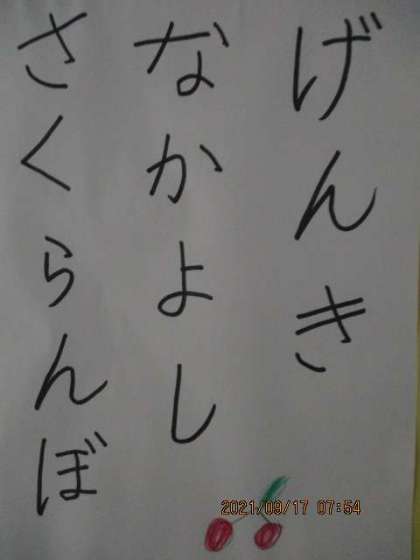 げんき
なかよし
さくらんぼ
2021/09/17 07:54